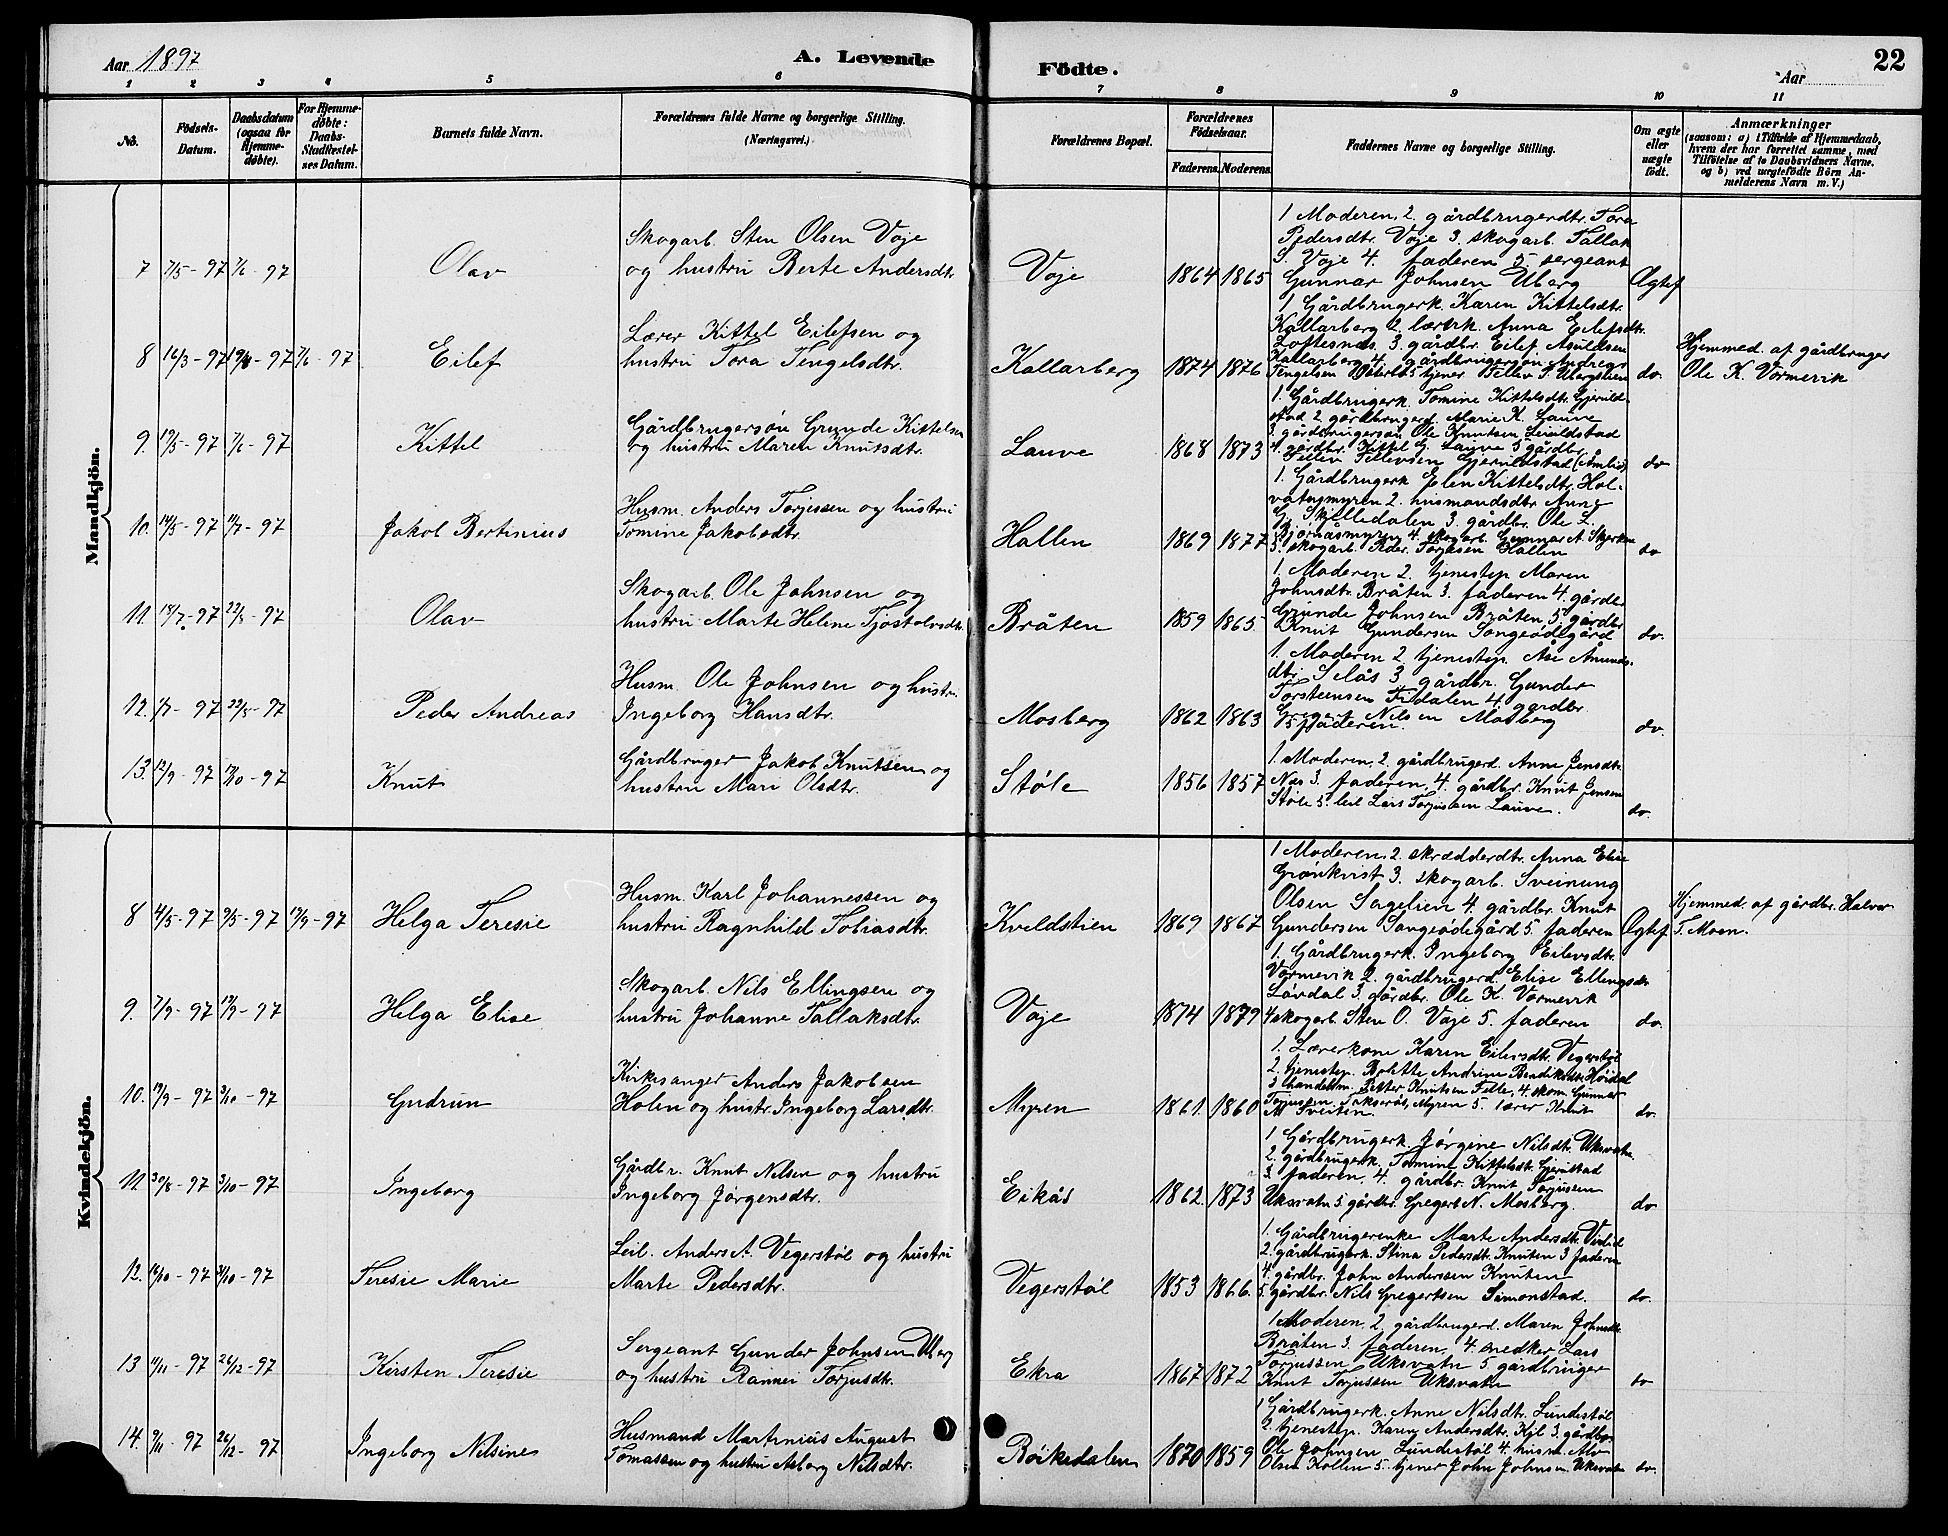 Aar 1897
A. Levende
Födte.
Aar
22
1 2 3 4 5 6 7 8 9 10 11
No.
Födsels-Datum.
Daabsdatum (ogsaa for Hjemme-döbte).
For Hjemme-döbte: Daabs-Stadfæstelses Datum.
Barnets fulde Navn.
Forældrenes fulde Navne og borgerlige Stilling.
(Næringsvei.)
Forældrenes Bopæl.
Forældrenes Födselsaar.
Faderens. Moderens.
Faddernes Navne og borgerlige Stilling.
Om ægte eller uægte födt.
Anmærkninger
(saasom: a) i Tilfælde af Hjemmedaab, hvem der har forrettet samme, med Tilföielse af to Daabsvidners Navne, og b) ved uægtefödte Börn Anmelderens Navn m. V.)
Mandkjön.
7 7/5-97 7/6-97 Olav
Skogarb. Sten Olsen Voje
og hustru Berte Andersdt.
Voje 1864 1865
1 Moderen, 2. gårdbrugerdtr. Tora
Pedersdtr. Voje 3. skogarb. Tallak
S. Voje 4. faderen 5. sergeant
Gunnar Johnsen Uberg
Ægtef
8 16/3-97 7/6-97 Eilef
Lærer Kittel Eilefsen og
hustru Tora Tengelsdtr.
Kallarberg 1874 1876
1 Gårdbrugerk. Karen Kittelsdtr.
Kallarberg 2. lærerk. Anna Eilefsdtr.
Loftesnes. 3. gårdbr. Eilef
Kallarberg 4. gårdbrugersøn Anders
Tengelsen 5 tjener
do.
Hjemmed. af gårdbruger
Ole K. Vormerik
9. 19/5-97 7/6-97 Kittel
Gårdbrugersøn Grunde Kittelsen
og hustru Maren Knutsdtr.
Lauve 1868 1873
1. Gårdbrugerk. Tomine Kittelsdtr. Gjeruld-
stad 2 gårdbrugerd. Marie K. Lauve
3 gårdbrugersøn Ole Knutsen
4. gårdbr. Kittel G. Lauve 5 gårdbr.
Tellev Tellevsen Gjeruldstad (Åmlid)
do
10. 14/5-97 Jakob Bertinius
Husm. Anders Torjussen og hustru
Tomine Jakobsdtr.
Hallen 1869 1877
1. Gårdbrugerk Elen Kittelsdtr. Hol-
vatnsmyren 2. husmandsdtr Anne
G. Skjelledalen 3. gårdbr. Ole L.
4. skogarb. Gunnar A.
5. skogarb. Peder Torjussen Hallen
do
11. 18/7-97 22/8-97 Olav
Skogarb. Ole Johnsen og
hustru Marte Helene Tjostolvsdtr.
Bråten 1859 1865
1. Moderen 2. tjenestep. Maren
Johnsdtr. Bråten 3. faderen 4. gårdbr
Grunde Johnsen Bråten, 5. gårdbr
Knut Gundersen Songeødegård
do.
12. 22/8-97 Peder Andreas
Husm. Ole Johnsen og hustru
Ingeborg Hansdtr.
Mosberg 1862 1863
1. Moderen 2. tjenestep. Åse Åmunds-
dtr. Selås 3 gårdbr. Gunder
Torsteinsen Fidalen 4. gårdbr.
Gregert Nilsen Mosberg
5 faderen.
do.
13. 12/9-97 Knut
Gårdbruger Jakob Knutsen og
hustru Mari Olsdtr.
Støle 1856 1857
1. Moderen, 2. gårdbrugerd. Anne Jensdtr.
Næs 3. faderen, 4. gårdbr. Knut Jensen
Støle 5. leil Lars Torjussen Lauve.
do.
Kvindekjön.
8 4/5-97 9/5-97 19/9-97 Helga Teresie
Husm. Karl Johannessen og
hustru Ragnhild Tobiasdtr.
Kveldstien 1869 1867
1 Moderen, 2. skrædderdtr. Anna Elise
Grønkvist 3. skogarb. Sveinung
Olsen Sagelien 4. gårdbr. Knut
Gundersen Songeødegård 5. faderen
Ægtef.
Hjemmed. af gårdbr. Halvor
T. Moen.
9. 7/9-97 19/9-97 Helga Elise
Skogarb. Nils Ellingsen og
hustru Johanne Tallaksdtr.
Voje 1874 1879
1. Gårdbrugerk. Ingeborg Eilevsdtr.
Vormevik 2. gårdbrugerd. Elise Ellingsdtr
Løvdal 3. gårdbr. Ole K. Vormerik
4 skogarb. Sten O. Voje 5. faderen
do.
10. 19/9-97 3/10-97 Gudrun
Kirkesanger Anders Jakobsen
Holen og hustr. Ingeborg Larsdtr.
Myren 1861. 1860
1. Lærerkone Karen Eilevsdtr. Vegerstøl
2. tjenestep. Bolette Andrine Bendiksdtr.
3 handelsm. Petter Knutsen Felle, 4. skom Gunnar
Torjussen Myren 5. lærer Knut
M Tveiten.
do.
11. 30/8-97 3/10-97 Ingeborg
Gårdbr. Knut Nilsen og hustru
Ingeborg Jørgensdtr.
Eikås 1862. 1873
1 Gårdbrugerk. Jørgine Nilsdtr. Uksvatn
2. gårdbrugerk. Tomine Kittelsdt. Gjerustad
3. faderen, 4. gårdbr. Knut Torjussen
Uksvatn 5. gårdbr. Gregert N. Mosberg.
do
12. 3/10-97 Teresie Marie
Leil. Anders A. Vegerstøl og hustru
Marte Pedersdtr.
Vegerstøl 1853 1866.
1. Gårdbrugerenke Marte Andersdtr.
2. gårdbrugerk. Stina Pedersdtr. Knuten 3 faderen
4. gårdbr. John Anderssen Knuten
5. gårdbr. Nils Gregertsen Simonstad.
do.
13 11/11-97 26/12-97 Kirsten Teresie
Sergeant Gunder Johnsen Uberg
og hustru Rannei Torjusdtr.
Ekra 1867 1872
1 Moderen, 2. gårdbrugerd. Maren Johnsdtr.
Bråten 3. faderen, 4. snedker Lars
Torjussen Uksvatn 5 gårdbruger
Knut Torjussen Uksvatn
do
14. 9/11-97 26/12-97 Ingeborg Nilsine
Husmand Martinius August
Tomassen og hustru Asborg Nilsdtr.
Bøikedalen 1870 1859
1 Gårdbrugerk. Anne Nilsdtr. Lundestøl
2. tjenestep. Karen Andersdtr. Kjil 3. gårdbr
Ole Johnsen Lundestøl 4. husm.
Olsen Hollen 5. tjener John Johnsen Uksvatn
do.